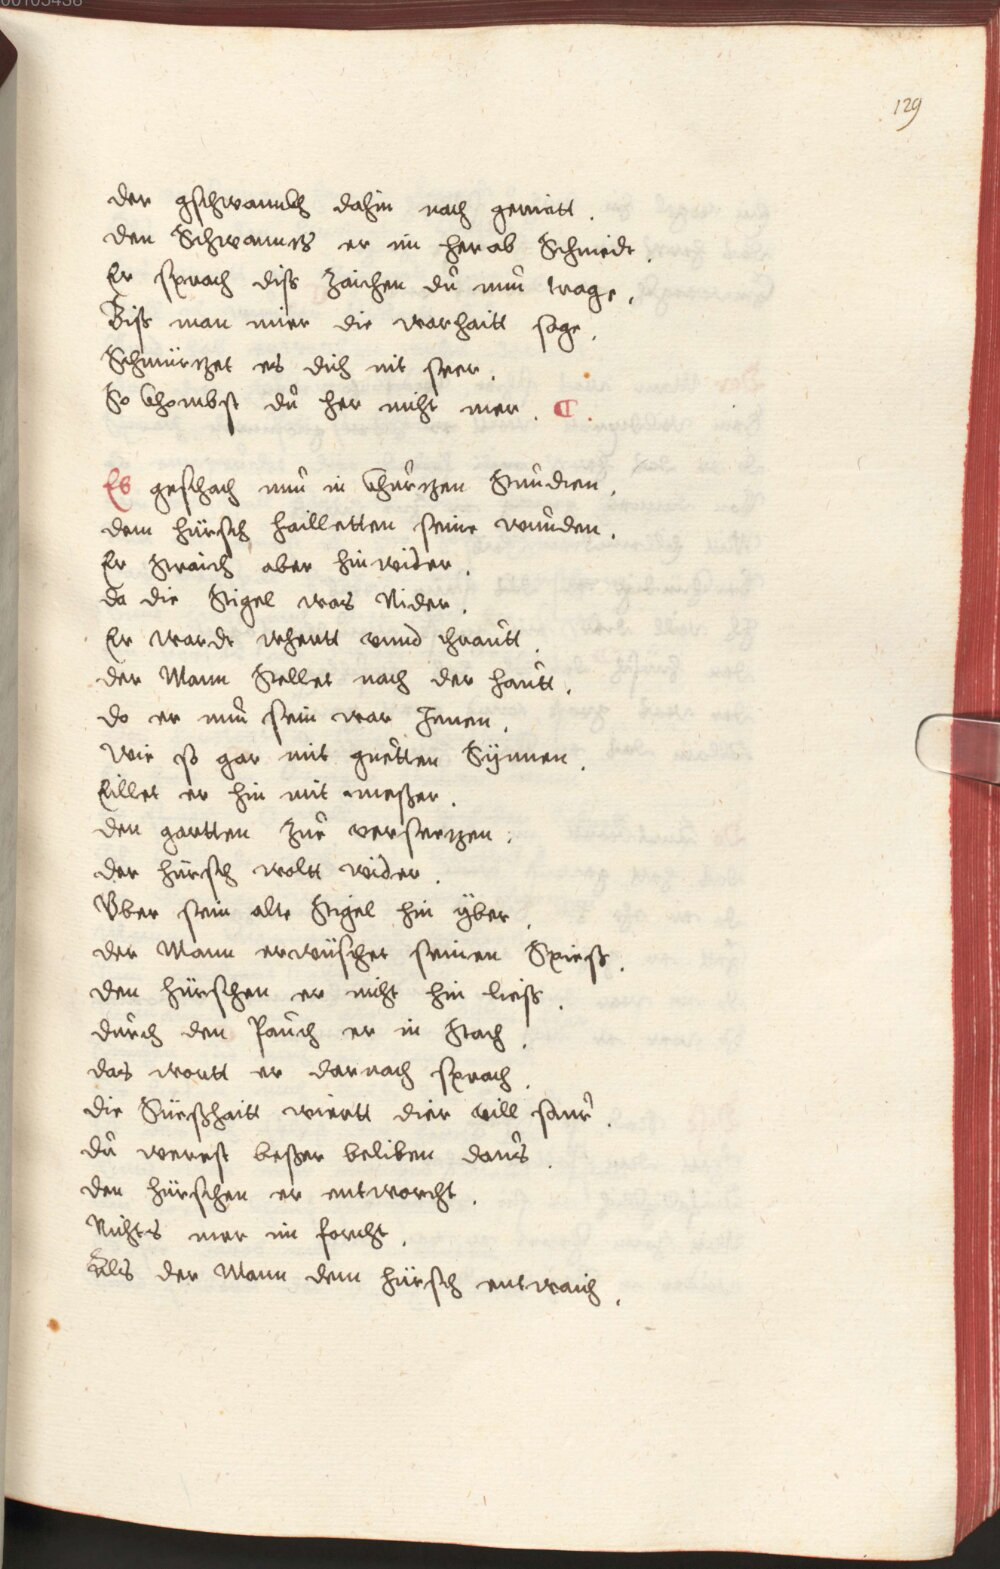 129
der gschwannckh dahin nach geriott .
den Schwanncz er im herab Schniedt .
Er sprach diß zaichen du nun trage .
Biß man mier die warhaitt sage .
Schmürczet es dich nit seer .
So khombst du her nicht mer . ¶ .
Es geschach nun in khurczen Stundten .
dem hürsch hailletten seine wunden .
Er Straich aber hinwider .
da die Stigel was Nider .
Er wardt khrautt .
der Mann Stellet nach der hautt .
do er nun sein war Innen .
Wie so gar mit guetten Synnen .
Eillet er hin mit meßer .
den gartten zue verseczen .
der hürsch wolt wider .
Vber sein alte Stigel hin yber .
der Mann erwüschet seinen Spieß .
den hürschen er nicht hin ließ .
durch den Pauch er in Stach .
das wortt er darnach sprach .
die Süeßhaitt wiertt dier vill saur .
du werest beßer beliben daus .
den hürschen er entworcht .
Nichts mer im forcht .
Als der Mann dem hürsch entwaich .